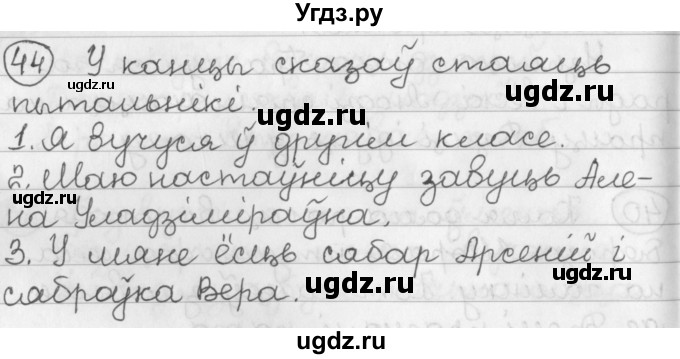 Угдз.ру
44 У канцы сказаў стаяць
пытальнікі.
1. Я вучуся ў другім класе.
2. Маю настаўніцу завуць Але-
на Уладзіміраўна.
3. У мяне ёсць сябар Арсеній і
сяброўка Вера.
ugdz.ru
ugdz.ru
ugdz.ru
ugdz.ru
ugdz.ru
ugdz.ru
ugdz.ru
ugdz.ru
ugdz.ru
ugdz.ru